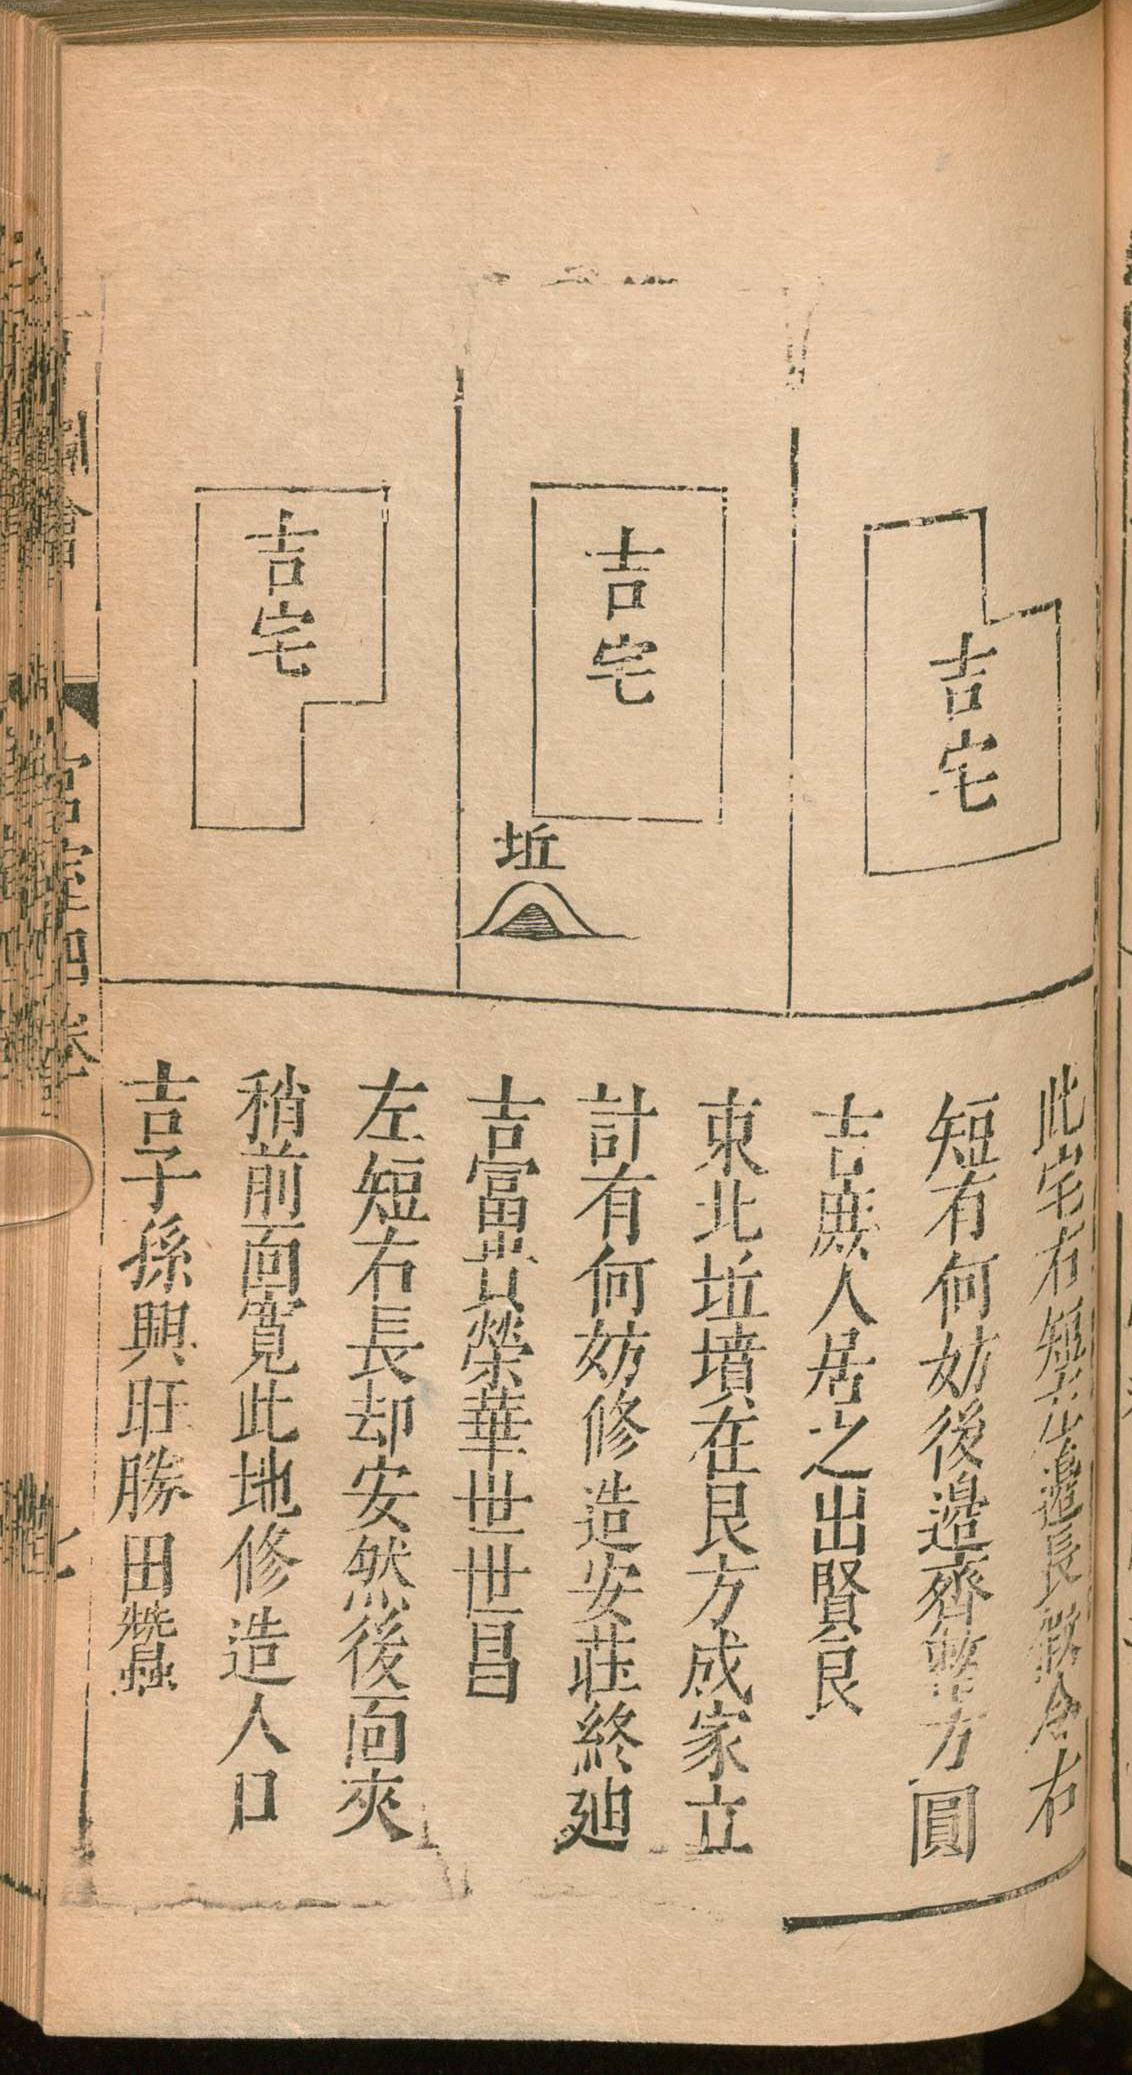 吉宅
此宅右短左邊長假令右
短有何妨後邊齊整方圓
吉庶人居之出賢良
吉宅
坵
東北坵墳在艮方成家立
計有何妨修造安莊終廸
吉富貴榮華世世昌
吉宅
左短右長却安然後面夾
稍前面寬此地修造人口
吉子孫興旺勝田蠶
圖會
宮室四卷